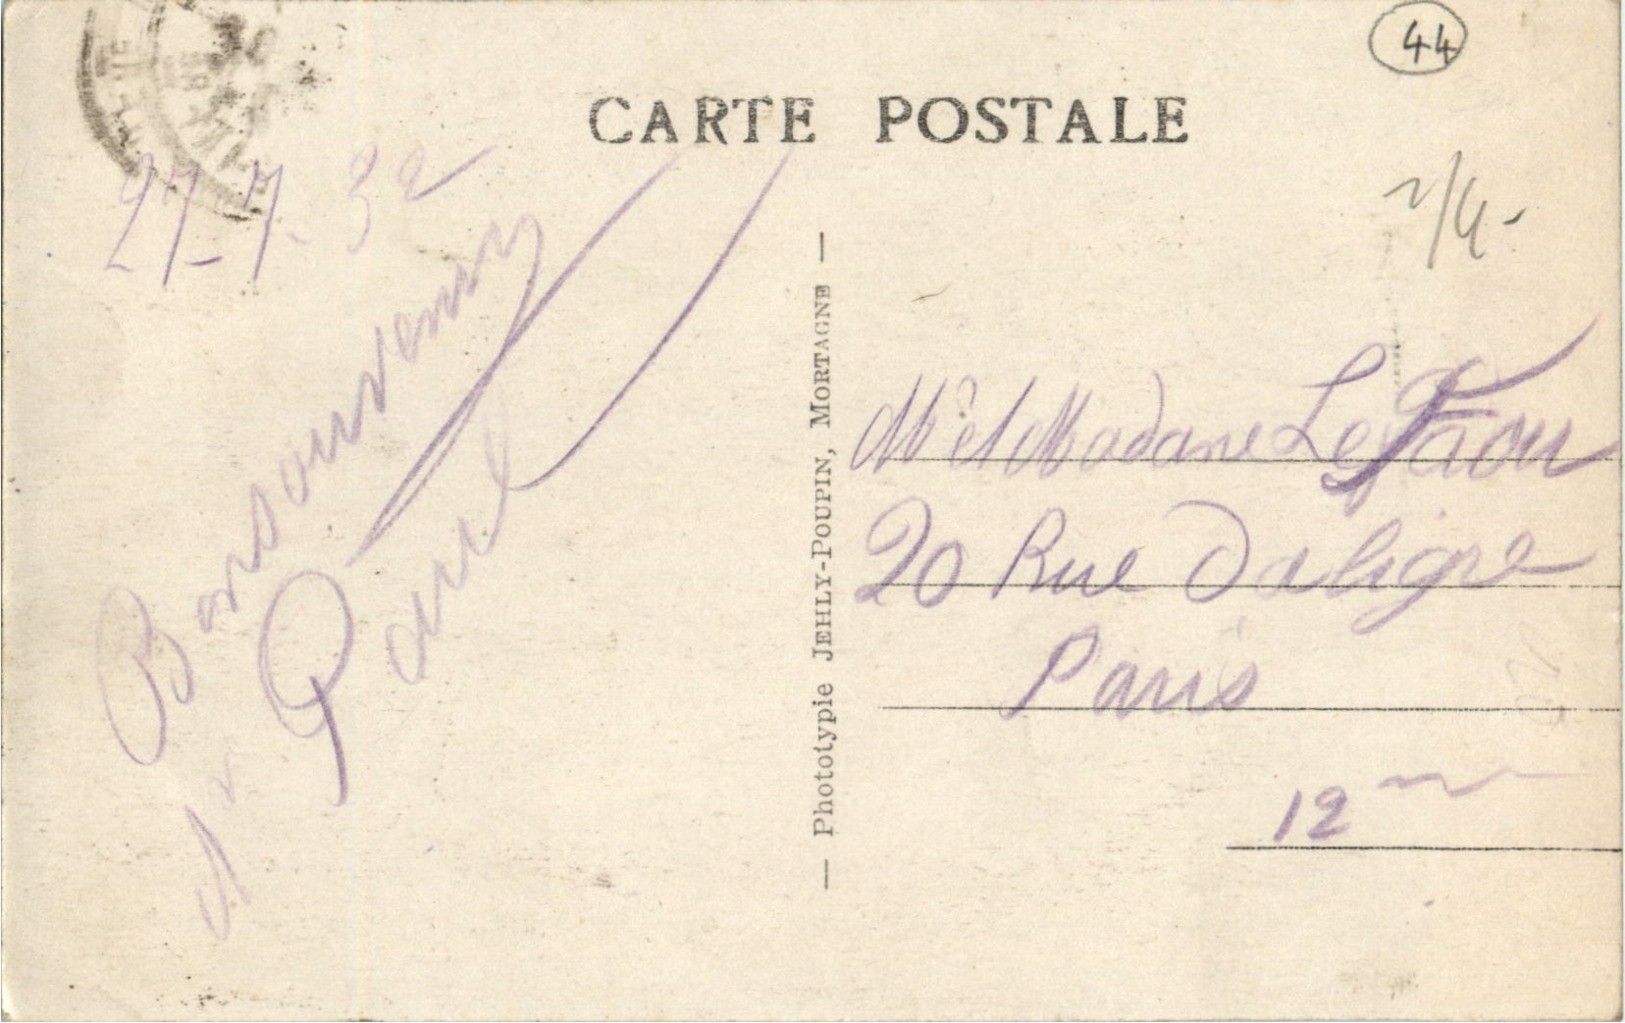 44
CARTE POSTALE
27-7-32
2/4-
Bon souvenir
Paul
— Phototypie JEHLY-POUPIN, MORTAGNE —
Mr et Madame Le Faou
20 Rue Daligre
Paris
12me